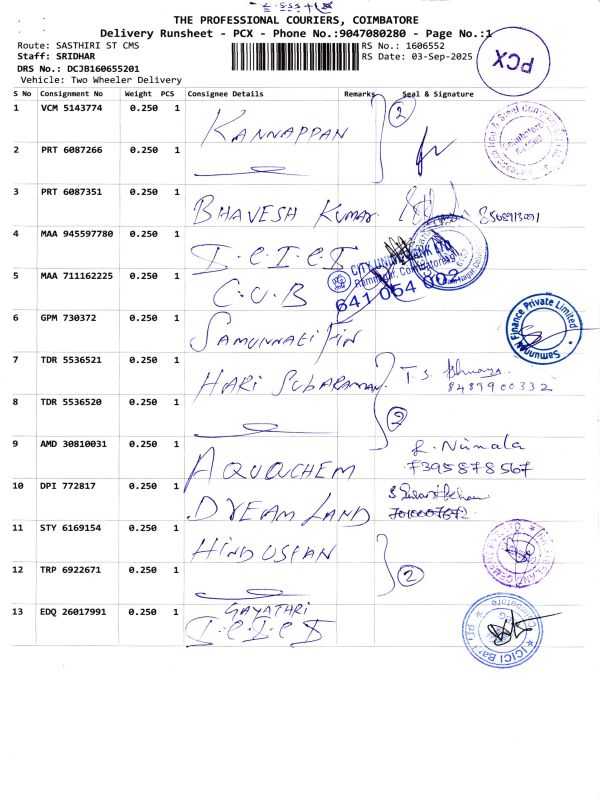 THE PROFESSIONAL COURIERS, COIMBATORE
Delivery Runsheet - PCX - Phone No.:9047080280 - Page No.:1
Route: SASTHIRI ST CMS RS No.: 1606552
Staff: SRIDHAR RS Date: 03-Sep-2025
DRS No.: DCJB160655201
Vehicle: Two Wheeler Delivery
PCX
S No Consignment No Weight PCS Consignee Details Remarks Seal & Signature
1 VCM 5143774 0.250 1 KANNAPPAN 2
2 PRT 6087266 0.250 1
3 PRT 6087351 0.250 1 BHAVESH KUMAR
4 MAA 945597780 0.250 1 I.C.I.C.I
CITY UNION BANK LTD
641 054 002
5 MAA 711162225 0.250 1 C.U.B
6 GPM 730372 0.250 1 SAMUNNATI FIN
Samunnati Finance Private Limited
7 TDR 5536521 0.250 1 HARI SUBARAMAN T.S.
8489900332
8 TDR 5536520 0.250 1 2
9 AMD 30810031 0.250 1 AQUACHEM R. Nirmala
7395878567
10 DPI 772817 0.250 1 DREAM LAND
11 STY 6169154 0.250 1 HINDUSTAN
12 TRP 6922671 0.250 1 2
13 EDQ 26017991 0.250 1 GAYATHRI
I.C.I.C.I
ICICI Bank
Coimbatore